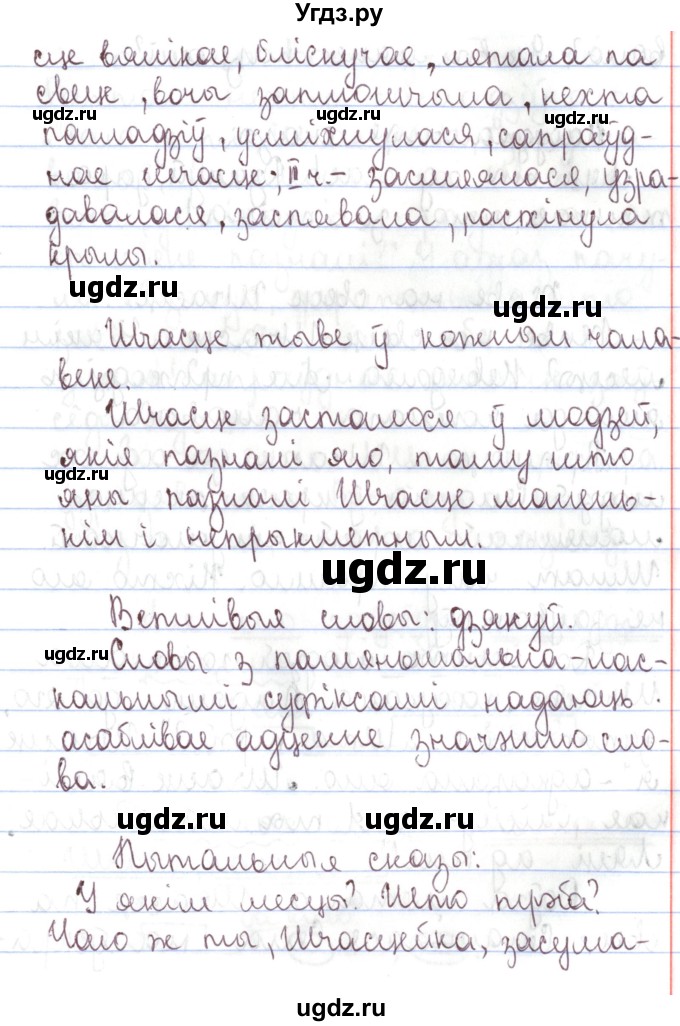 Угдз.ру
сце вялікае, бліскучае, лятала па
свеце, вочы заплюшчыла, нехта
ugdz.ru ugdz.ru
пагладзіў, усміхнулася, сапраўд-
нае шчасце; II ч. – засмяялася, узра-
давалася, заспявала, расхінула
крылы.
ugdz.ru ugdz.ru
Шчасце жыве ў кожным чала-
веке.
Шчасце засталося ў людзей,
якія пазналі яго, таму што
ugdz.ru
яны пазналі Шчасце малень-
кім і непрыкметным.
ugdz.ru
Ветлівыя словы: дзякуй.
ugdz.ru
Словы з памяншальна-лас-
кальнымі суфіксамі надаюць
асаблівае адценне значэнню сло-
ва.
ugdz.ru ugdz.ru
Пытальныя сказы:
У якім месцы? Што трэба?
Чаго ж ты, Шчасцейка, засума-
ugdz.ru